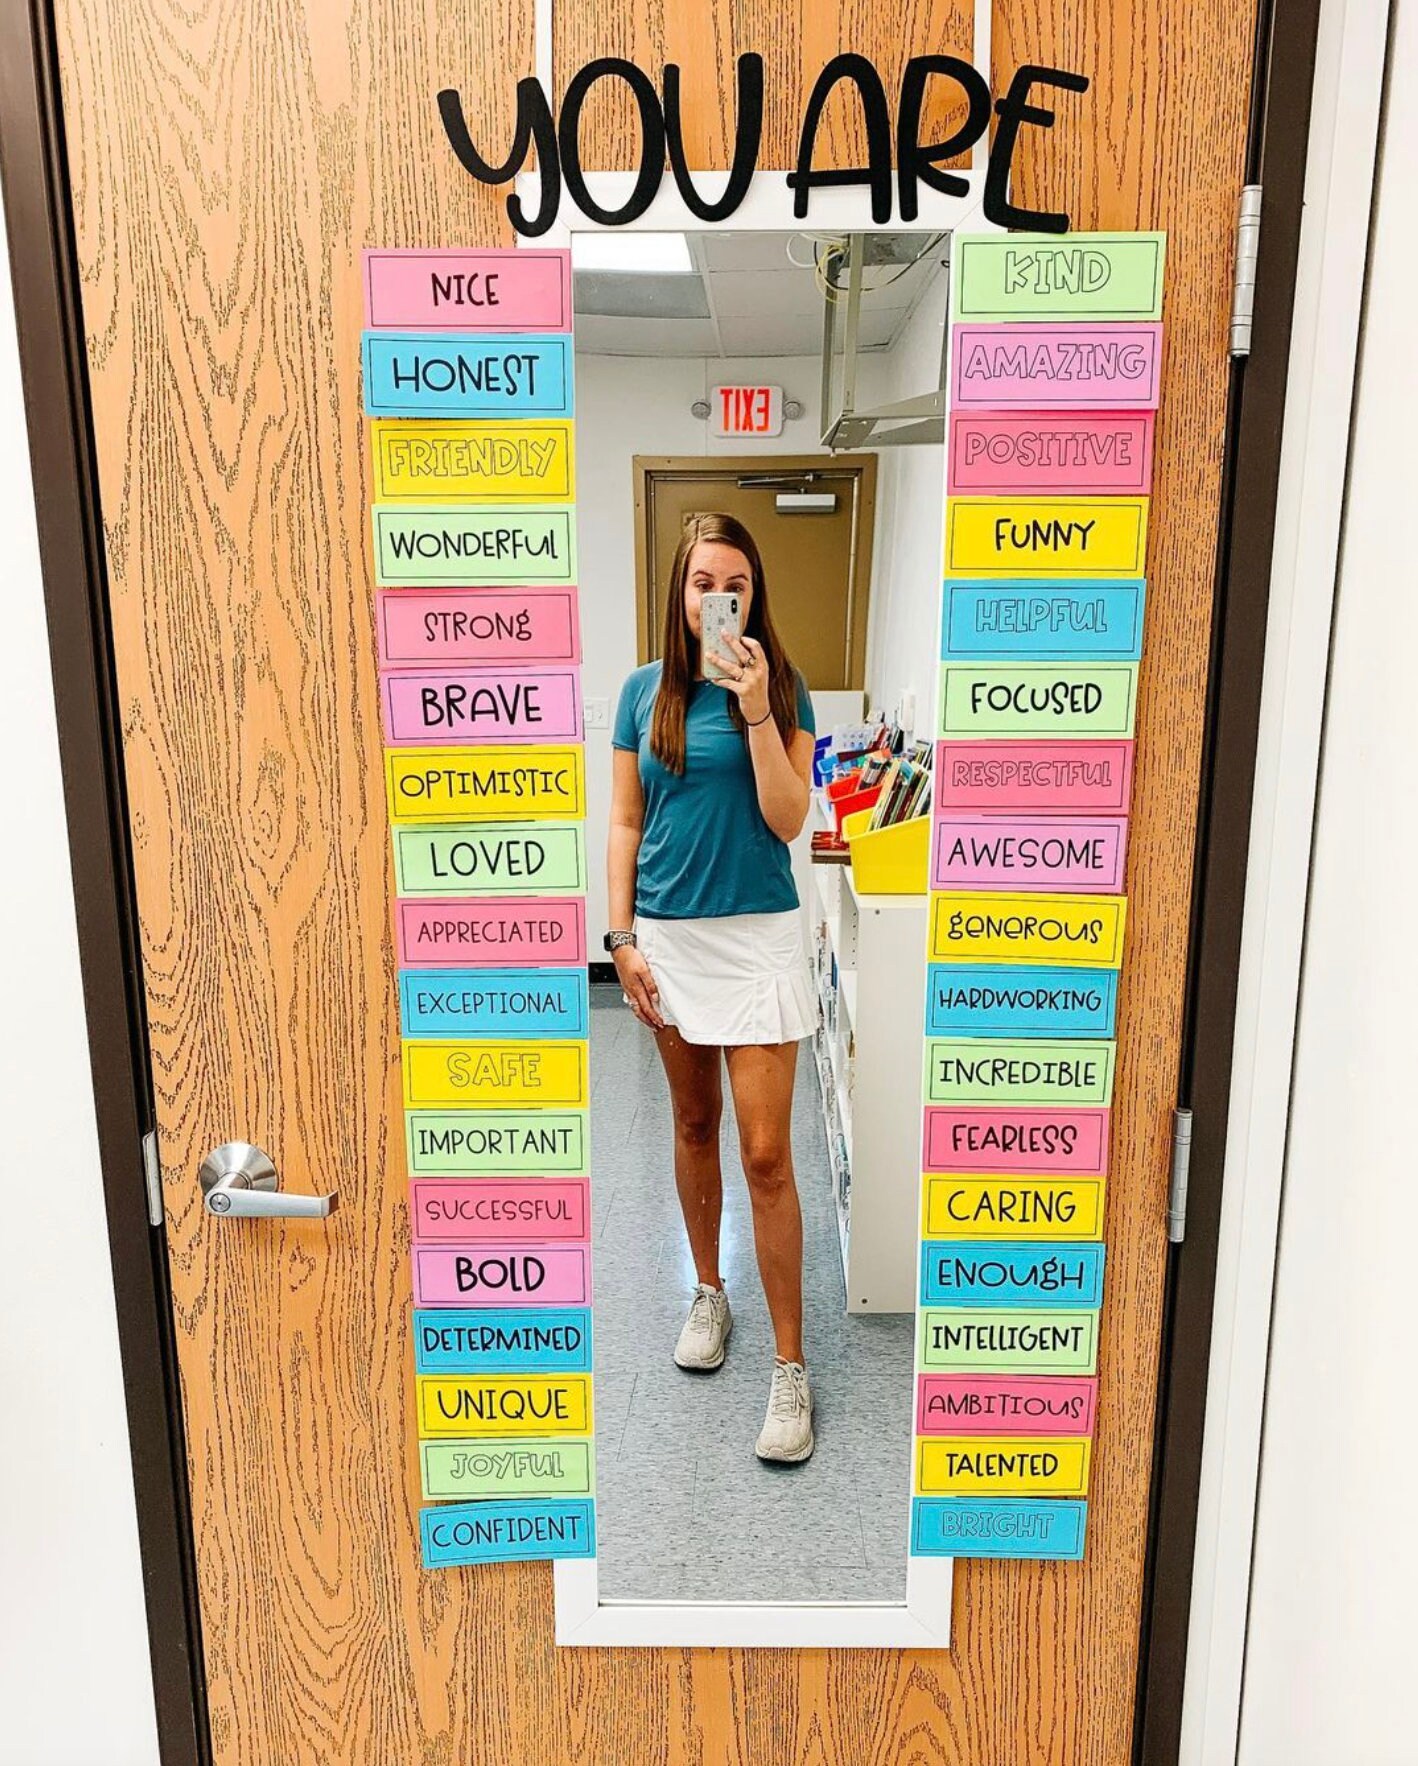 YOU ARE
NICE
HONEST
FRIENDLY
WONDERFUL
STRONG
BRAVE
OPTIMISTIC
LOVED
APPRECIATED
EXCEPTIONAL
SAFE
IMPORTANT
SUCCESSFUL
BOLD
DETERMINED
UNIQUE
JOYFUL
CONFIDENT
EXIT
KIND
AMAZING
POSITIVE
FUNNY
HELPFUL
FOCUSED
RESPECTFUL
AWESOME
GENEROUS
HARDWORKING
INCREDIBLE
FEARLESS
CARING
ENOUGH
INTELLIGENT
AMBITIOUS
TALENTED
BRIGHT